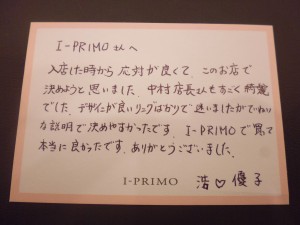 I-PRIMOさんへ
入店した時から応対が良くて、このお店で
決めようと思いました。中村店長さんもすごく綺麗
でした。デザインが良いリングばかりで迷いましたがていねい
な説明で決めやすかったです。I-PRIMOで買て
本当に良かったです。ありがとうございました。
I-PRIMO 浩♡優子